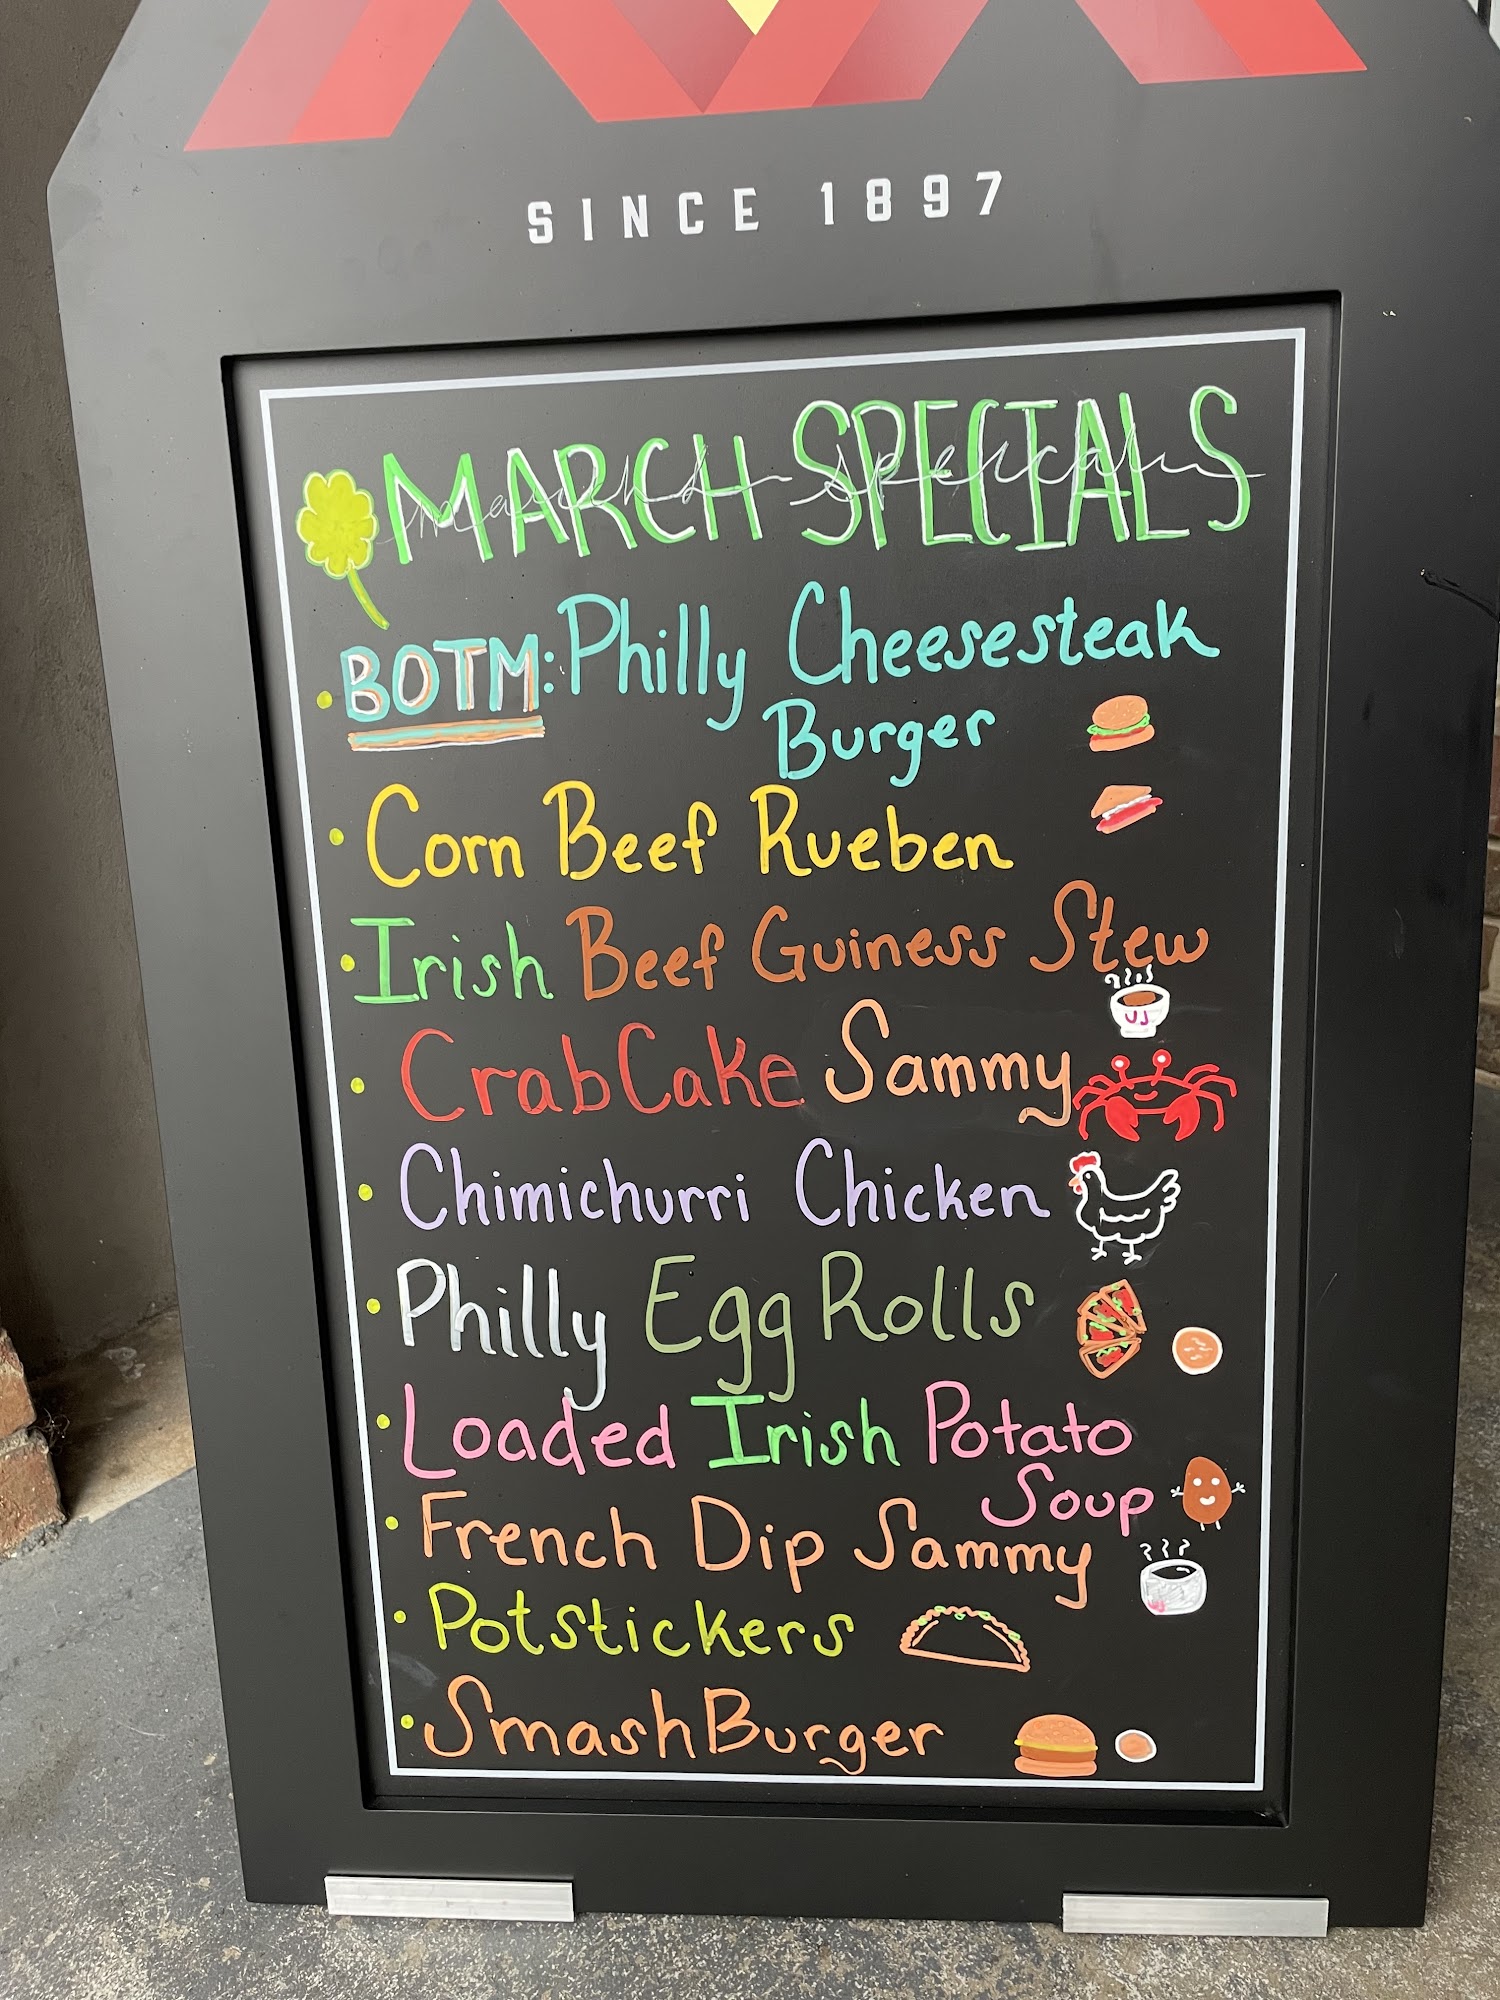 SINCE 1897
MARCH SPECIALS
BOTM: Philly Cheesesteak
Burger
Corn Beef Rueben
Irish Beef Guiness Stew
UJ
CrabCake Sammy
Chimichurri Chicken
Philly Egg Rolls
Loaded Irish Potato
Soup
French Dip Sammy
UJ
Potstickers
SmashBurger